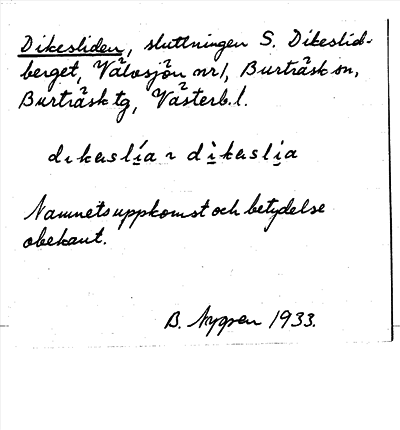 Dikesliden, sluttningen S. Dikeslid-
berget, Välvsjön nr 1, Burträsk sn,
Burträsk tg, Västerb. l.
dıkɐslía ~ dìkɐslía
Namnets uppkomst och betydelse
obekant.
B. Nygren 1933.